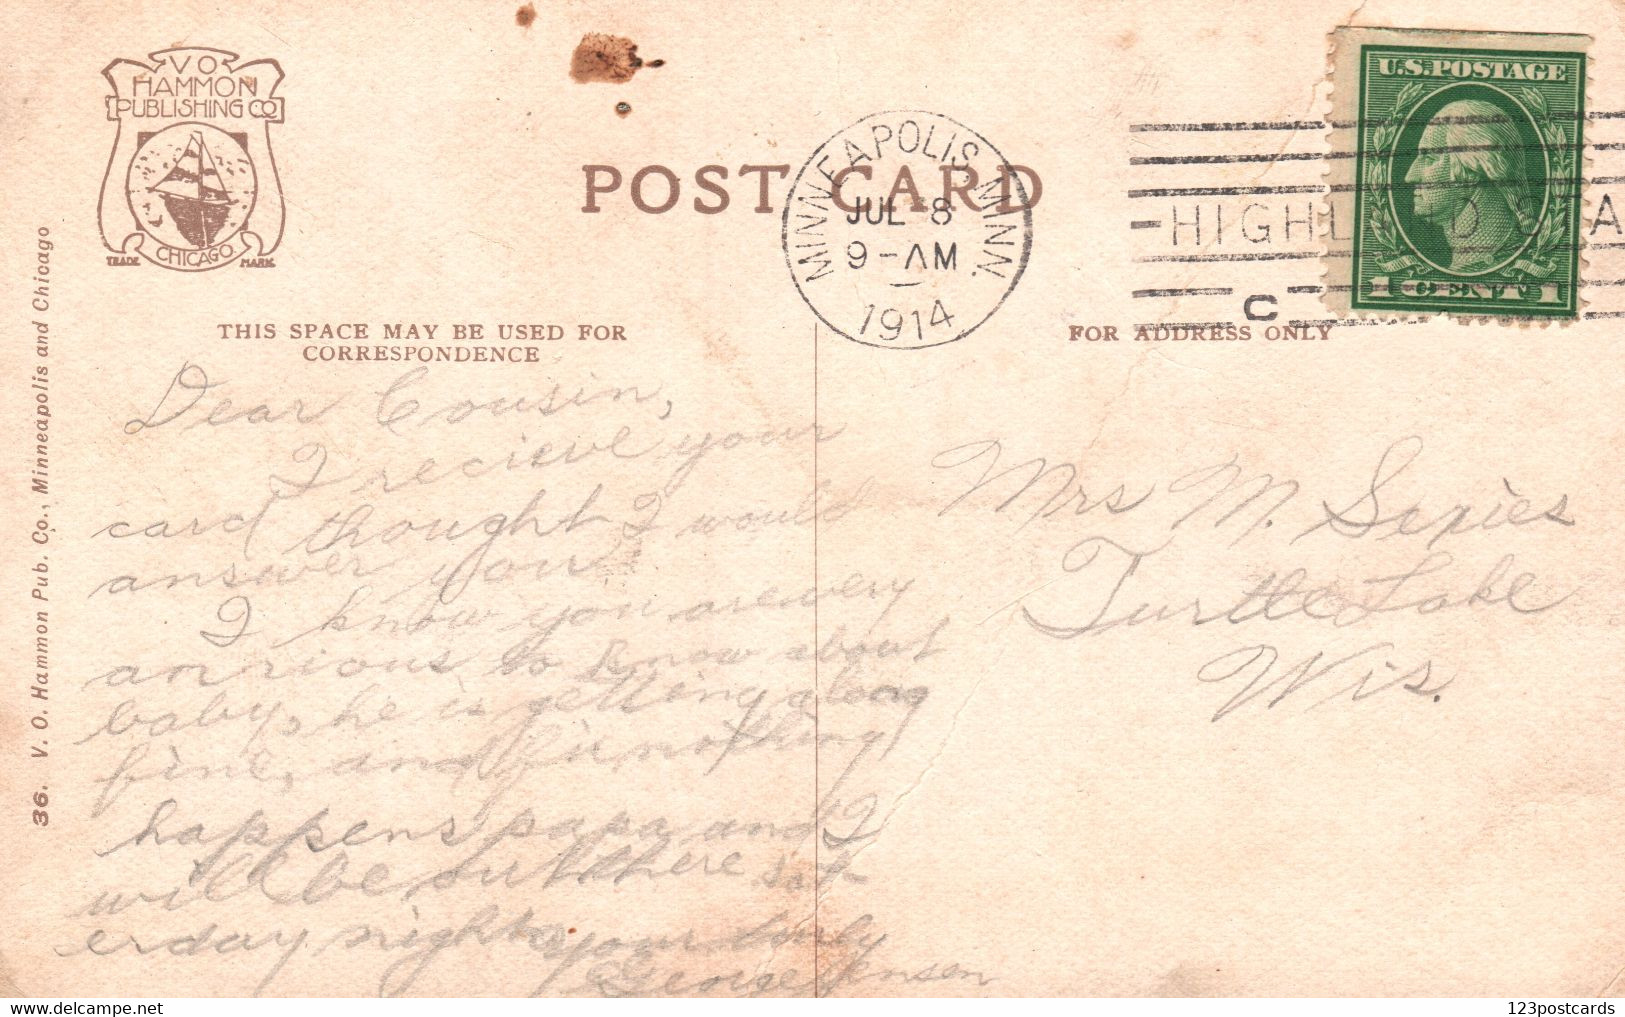 V O
HAMMON
PUBLISHING CO
CHICAGO
TRADE MARK
POST CARD
MINNEAPOLIS, MINN.
JUL 8
9-AM
1914
U.S. POSTAGE
1 CENT 1
HIGHL D STA
C
THIS SPACE MAY BE USED FOR
CORRESPONDENCE
FOR ADDRESS ONLY
36. V. O. Hammon Pub. Co., Minneapolis and Chicago
Dear Cousin,
I recieve your
card thought I would
answer you
I know you are very
anxious to know about
baby, he is getting along
fine, and if nothing
happens papa and I
will be out there sat-
erday night
your truly
George Jensen
Mrs M. Series
Turtle Lake
Wis.
123postcards